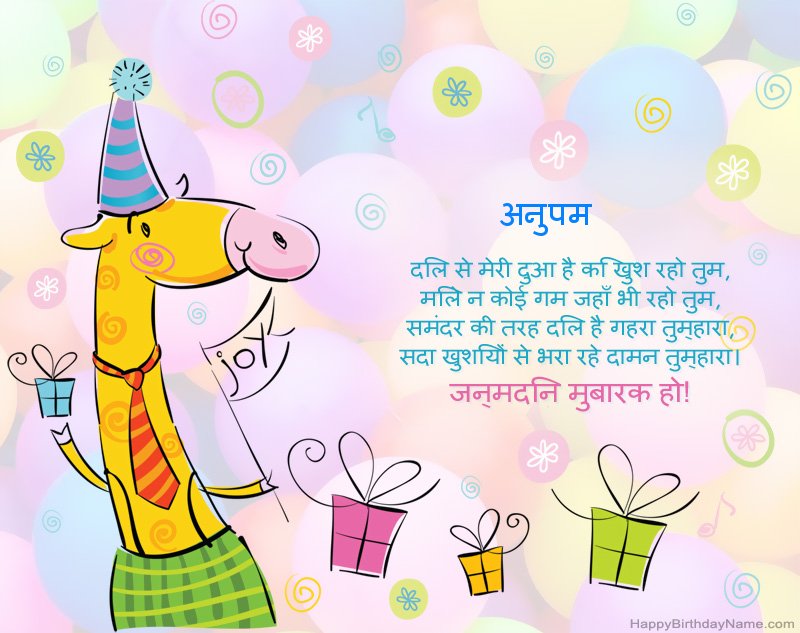 अनुपम
दिल से मेरी दुआ है कि खुश रहो तुम,
मिले न कोई गम जहाँ भी रहो तुम,
समंदर की तरह दिल है गहरा तुम्हारा,
सदा खुशियों से भरा रहे दामन तुम्हारा।
जन्मदिन मुबारक हो!
joy
HappyBirthdayName.com